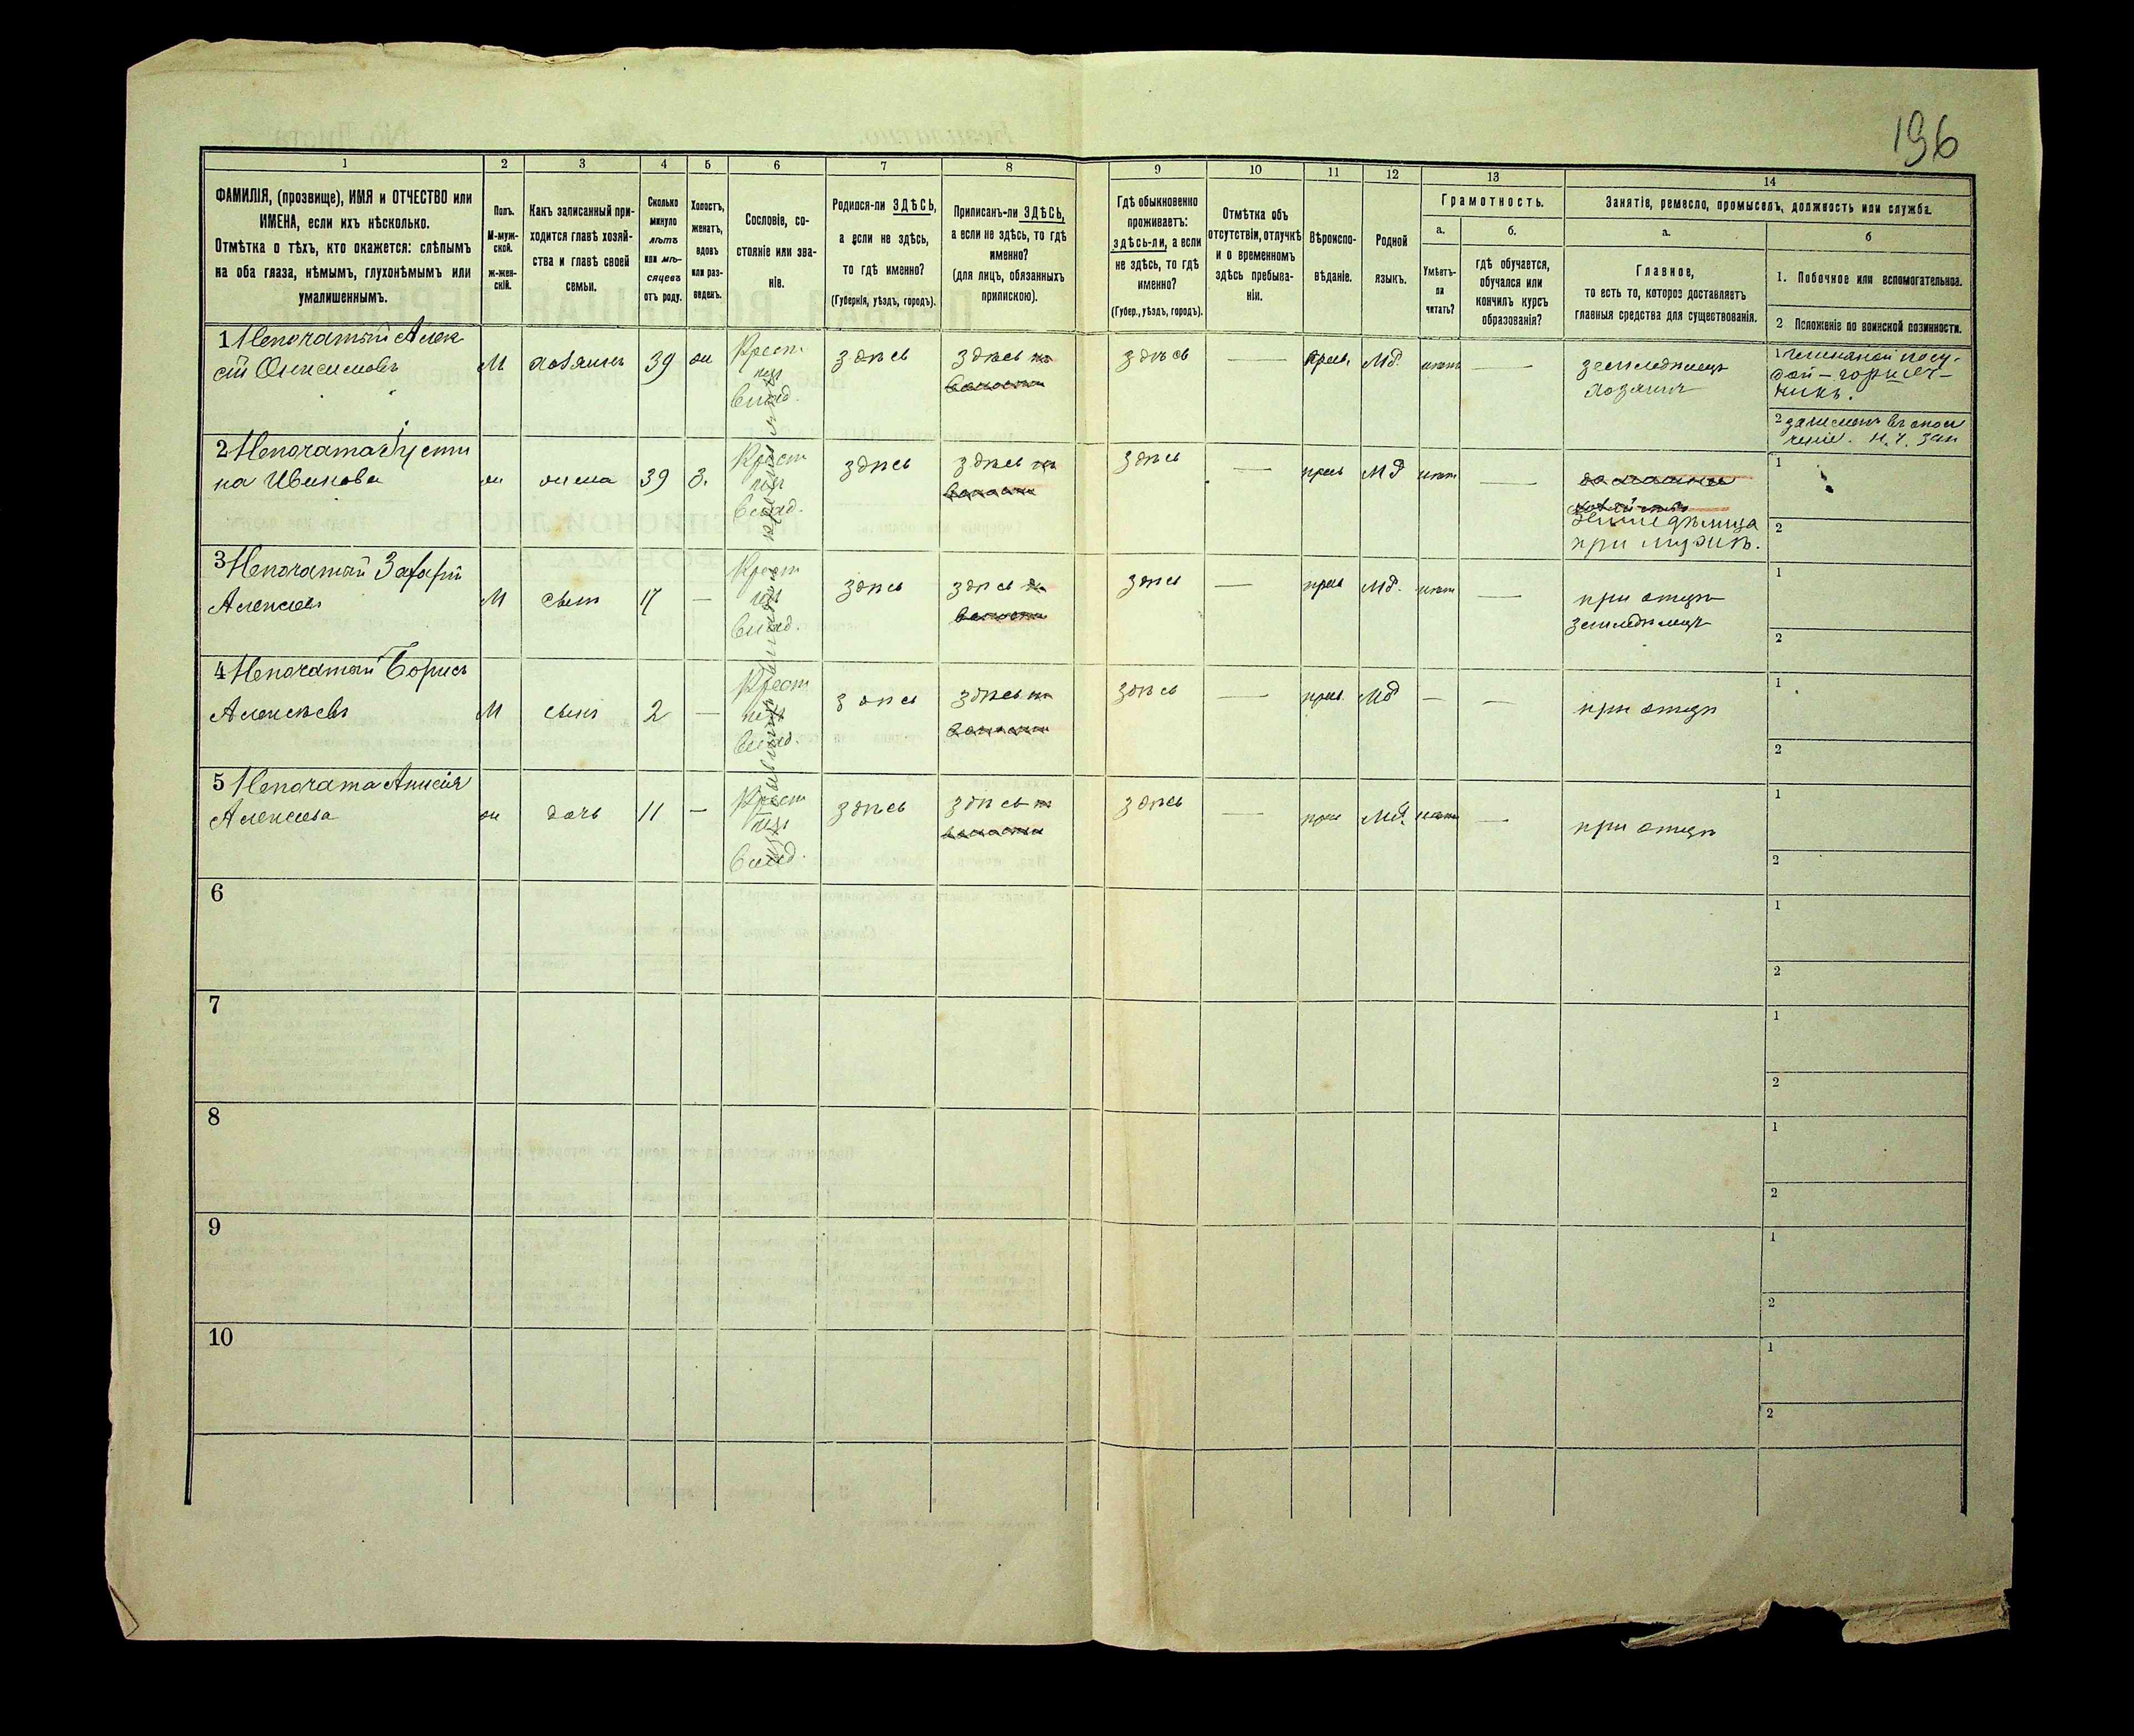 196
1 2 3 4 5 6 7 8 9 10 11 12 13 14
ФАМИЛІЯ, (прозвище), ИМЯ и ОТЧЕСТВО или
ИМЕНА, если ихъ нѣсколько.
Отмѣтка о тѣхъ, кто окажется: слѣпымъ
на оба глаза, нѣмымъ, глухонѣмымъ или
умалишеннымъ.
Полъ.
М-муж-
ской.
ж-жен-
скій.
Какъ записанный при-
ходится главѣ хозяй-
ства и главѣ своей
семьи.
Сколько
минуло
лѣтъ
или мѣ-
сяцевъ
отъ роду.
Холостъ,
женатъ,
вдовъ
или раз-
веденъ.
Сословіе, со-
стояніе или зва-
ніе.
Родился-ли ЗДѢСЬ,
а если не здѣсь,
то гдѣ именно?
(Губернія, уѣздъ, городъ).
Приписанъ-ли ЗДѢСЬ,
а если не здѣсь, то гдѣ
именно?
(для лицъ, обязанныхъ
припискою).
Гдѣ обыкновенно
проживаетъ:
здѣсь-ли, а если
не здѣсь, то гдѣ
именно?
(Губер., уѣздъ, городъ).
Отмѣтка объ
отсутствіи, отлучкѣ
и о временномъ
здѣсь пребыва-
ніи.
Вѣроиспо-
вѣданіе.
Родной
языкъ.
Грамотность.
а.
Умѣетъ-
ли
читать?
б.
гдѣ обучается,
обучался или
кончилъ курсъ
образованія?
Занятіе, ремесло, промыселъ, должность или служба.
а.
Главное,
то есть то, которое доставляетъ
главныя средства для существованія.
б
1. Побочное или вспомогательное.
2 Положеніе по воинской повинности.
1 Непочатый Алек
сій
М хозяинъ 39 ж Крест
здѣсь здѣсь
здѣсь — прав. Мд. нѣтъ —
земледѣлецъ
хозяинъ
1
2
2 Непочата Густи
на Иванова
ж жена 39 з. Крест
здѣсь здѣсь
здѣсь — прав Мд нѣтъ —
земледѣлица
при мужѣ.
1
2
3 Непочатый Захарій
Алексѣевъ
М сынъ 17 — Крест
здѣсь здѣсь
здѣсь — прав Мд. нѣтъ —
при отцѣ
земледѣлецъ
1
2
4 Непочатый Борисъ
Алексѣевъ
М сынъ 2 — Крест
здѣсь здѣсь
здѣсь — прав. Мд — —
при отцѣ
1
2
5 Непочата Анисія
Алексѣева
ж дочь 11 — Крест
здѣсь здѣсь
здѣсь — прав Мд. нѣтъ —
при отцѣ
1
2
6
1
2
7
1
2
8
1
2
9
1
2
10
1
2